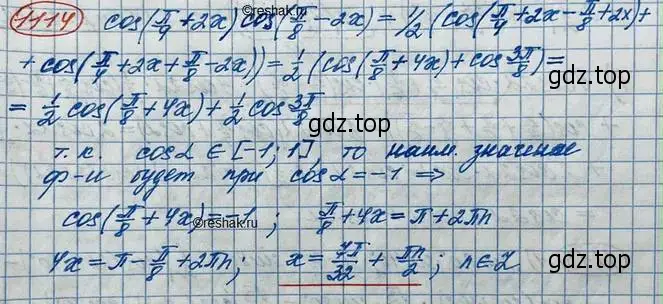 1414 cos(π/4 + 2x) cos(π/8 - 2x) = 1/2 (cos(π/4 + 2x - π/8 + 2x) +
+ cos(π/4 + 2x + π/8 - 2x)) = 1/2 (cos(π/8 + 4x) + cos 3π/8) =
= 1/2 cos(π/8 + 4x) + 1/2 cos 3π/8
gdz.top
т. к. cos α ∈ [-1; 1], то наим. значение
ф-и будет при cos α = -1 ⇒
cos(π/8 + 4x) = -1 ; π/8 + 4x = π + 2πn
4x = π - π/8 + 2πn ; x = 7π/32 + πn/2 ; n ∈ Z
gdz.top
gdz.top